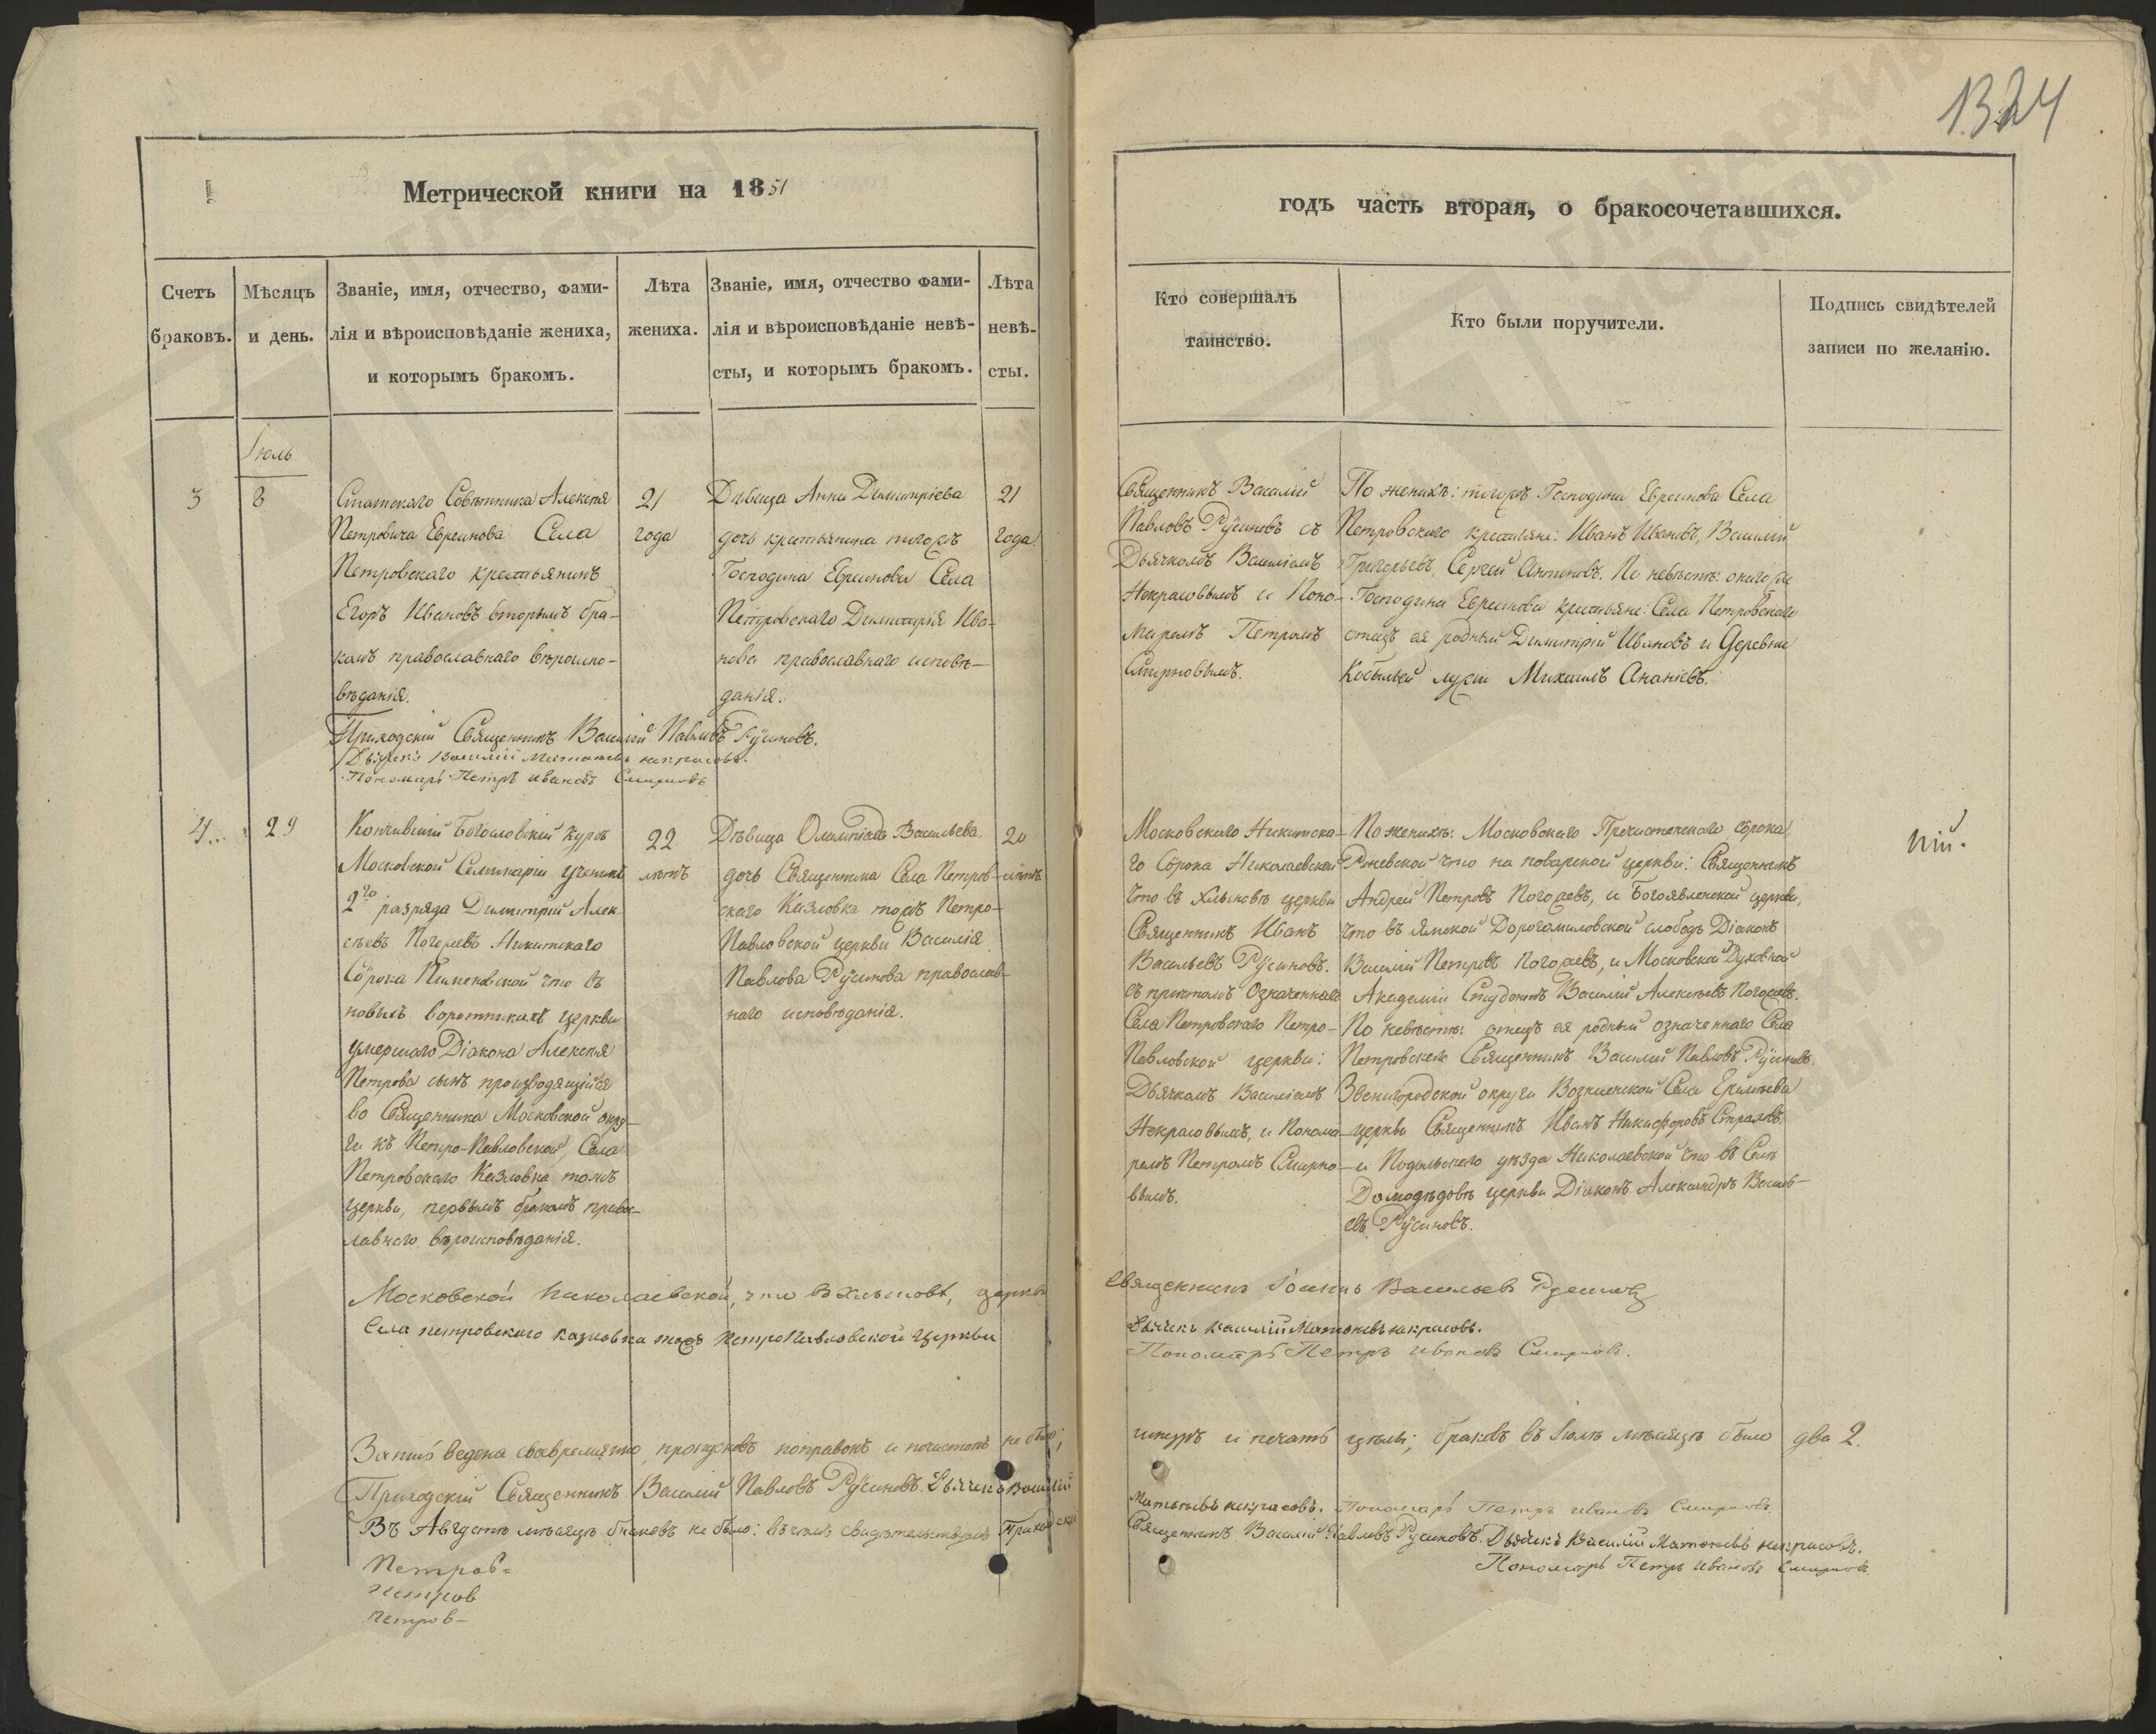 1324
Метрической книги на 1851
Счетъ браковъ.
Мѣсяцъ и день.
Званіе, имя, отчество, фами-
лія и вѣроисповѣданіе жениха,
и которымъ бракомъ.
Лѣта
жениха.
Званіе, имя, отчество фами-
лія и вѣроисповѣданіе невѣ-
сты, и которымъ бракомъ.
Лѣта
невѣ-
сты.
Іюль
3
8
Статскаго Совѣтника Алексѣя
Петровича Евреинова Села
Петровскаго крестьянинъ
Егоръ Ивановъ вторымъ бра-
комъ православнаго вѣроиспо-
вѣданія.
21
года
Дѣвица Анна Димитріева
дочь крестьянина тогожъ
Господина Евреинова Села
Петровскаго Димитрія Ива-
нова православнаго исповѣ-
данія.
21
года
Приходскій Священникъ Василій Павловъ Русиновъ.
Дьячекъ Василій Матвѣевъ Некрасовъ.
Пономарь Петръ Ивановъ Смирновъ
4
29
Кончившій Богословскій курсъ
Московской Семинаріи ученикъ
2го разряда Димитрій Алек-
сѣевъ Погожевъ Никитскаго
Сорока Пименовской что въ
новыхъ воротникахъ церкви
умершаго Діакона Алексѣя
Петрова сынъ производящійся
во Священника Московской окру-
ги къ Петро-Павловской, Села
Петровскаго Казловка тожъ
церкви, первымъ бракомъ право-
лавнаго вѣроисповѣданія.
22
лѣтъ
Дѣвица Олимпіада Васильева
дочь Священника Села Петров-
скаго Казловка тожъ Петро-
Павловской церкви Василія
Павлова Русинова православ-
наго исповѣданія.
20
лѣтъ
Московской Николаевской, что в Хлыновѣ, церкви
Села петровскаго казловка тожъ петроПавловской церкви
Запись ведена своевремянно, пропусковъ поправокъ и почистокъ не было;
Приходскій Священникъ Василій Павловъ Русиновъ. Дьячекъ Василій
Въ Августѣ мѣсяцѣ браковъ не было: въ чемъ свидѣтельствуемъ Приходскій
Петров-
Петров
петров-
годъ часть вторая, о бракосочетавшихся.
Кто совершалъ
таинство.
Кто были поручители.
Подпись свидѣтелей
записи по желанію.
Священникъ Василій
Павловъ Русиновъ съ
Дьячкомъ Василіемъ
Некрасовымъ и Поно-
маремъ Петромъ
Смирновымъ.
По женихѣ: тогожъ Господина Евреинова Села
Петровскаго крестьяне: Иванъ Ивановъ, Василій
Григорьевъ, Сергей Антоновъ. По невѣстѣ: онагоже
Господина Евреинова крестьяне: Села Петровскаго
отецъ ея родный Димитрій Ивановъ и Деревни
Кобыльей лужи Михаилъ Ананіевъ.
Московскаго Никитска-
го Сорока Николаевской
что въ Хлыновѣ церкви
Священникъ Иванъ
Васильевъ Русиновъ.
съ причтомъ Означеннаго
Села Петровскаго Петро-
Павловской церкви:
Дьячкомъ Василіемъ
Некрасовымъ, и Понома-
ремъ Петромъ Смирно-
вымъ.
По женихѣ: Московскаго Пречистенскаго сорока,
Ржевской что на поварской церкви: Священникъ
Андрей Петровъ Погожевъ, и Богоявленской церкви,
что въ ямской Дорогомиловской слободѣ Діаконъ
Василій Петровъ Погожевъ, и Московской Духовной
Академіи Студентъ Василій Алексѣевъ Погожевъ.
По невѣстѣ: отецъ ея родный означеннаго Села
Петровскаго Священникъ Василий Павловъ Русиновъ.
Звенигородской округи Вознесенской Села Еремѣева
церкви Священникъ Иванъ Никифоровъ Страховъ.
и Подольскаго уѣзда Николаевской что въ Селѣ
Домодѣдовѣ церкви Діаконъ Александръ Василь-
евъ Русиновъ.
Священникъ Іоаннъ Васильевъ Русиновъ
Дьячекъ Василій Матвѣевъ Некрасовъ.
Пономарь Петръ Ивановъ Смирновъ.
шнуръ и печать цѣлы; браковъ въ Іюлѣ мѣсяцѣ было два 2.
Матвѣевъ Некрасовъ. Пономарь Петръ Ивановъ Смирновъ.
Священникъ Василій Павловъ Русиновъ. Дьячекъ Василій Матвѣевъ Некрасовъ.
Пономарь Петръ Ивановъ Смирновъ.
ГЛАВАРХИВ
МОСКВЫ